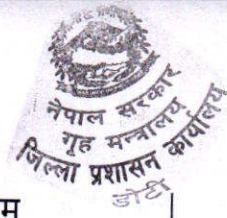 नेपाल सरकार
गृह मन्त्रालय
जिल्ला प्रशासन कार्यालय
डोटी
म